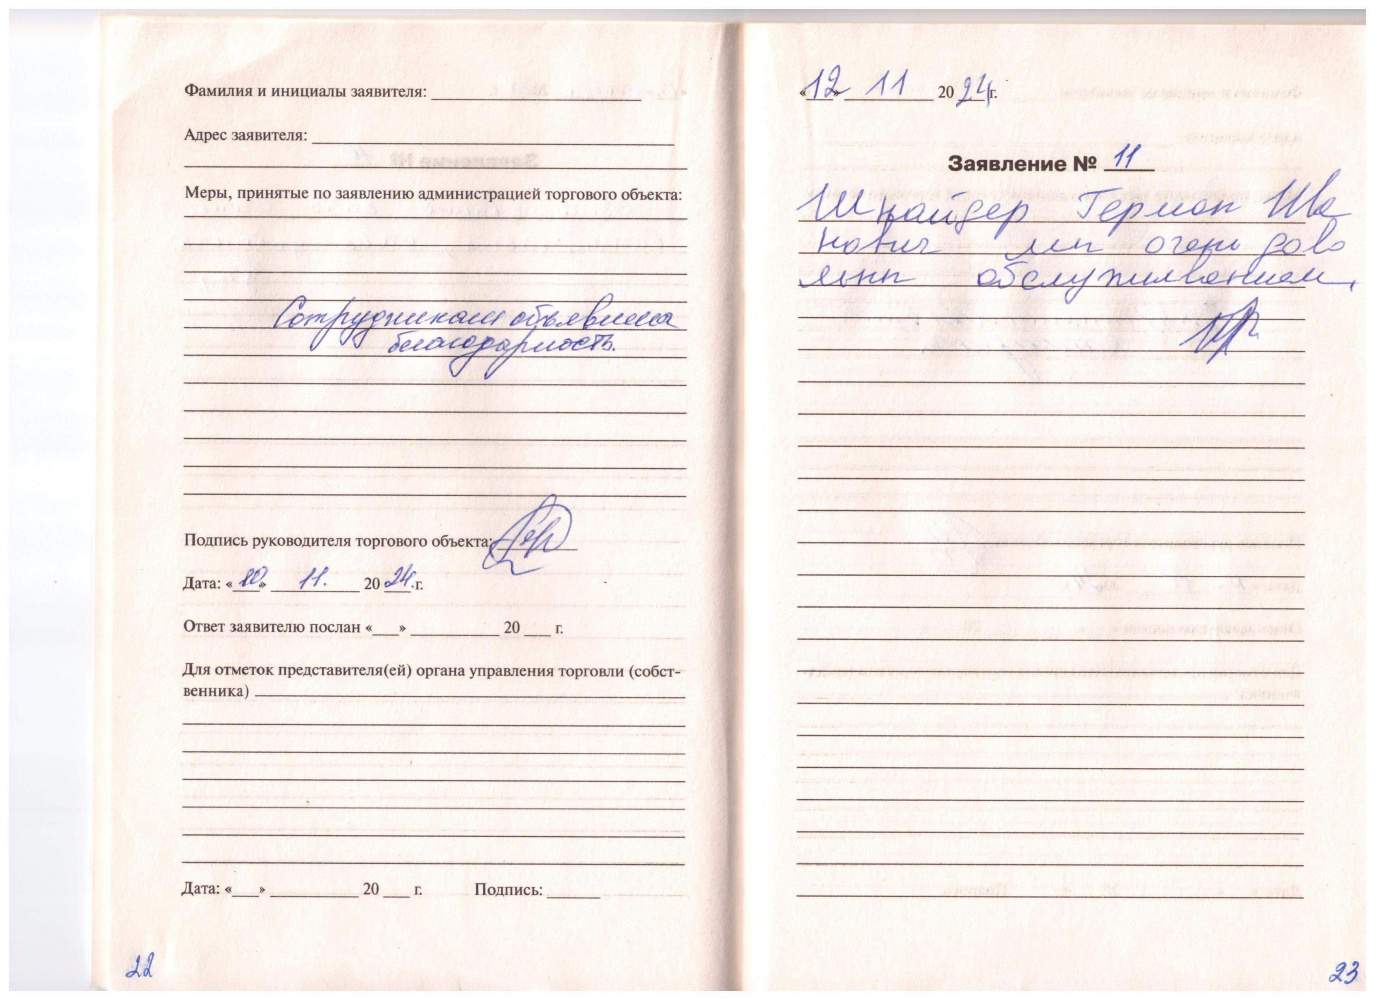 Фамилия и инициалы заявителя:
Адрес заявителя:
Меры, принятые по заявлению администрацией торгового объекта:
Сотрудникам объявлена
благодарность.
Подпись руководителя торгового объекта:
Дата: «10» 11. 20 24.г.
Ответ заявителю послан «___» ________ 20 ___ г.
Для отметок представителя(ей) органа управления торговли (собст-
венника)
Дата: «___» ________ 20 ___ г. Подпись:
22
«12» 11 20 24 г.
Заявление № 11
Шнайдер Герман Ива
нович мы очень дово
льны обслуживанием,
23